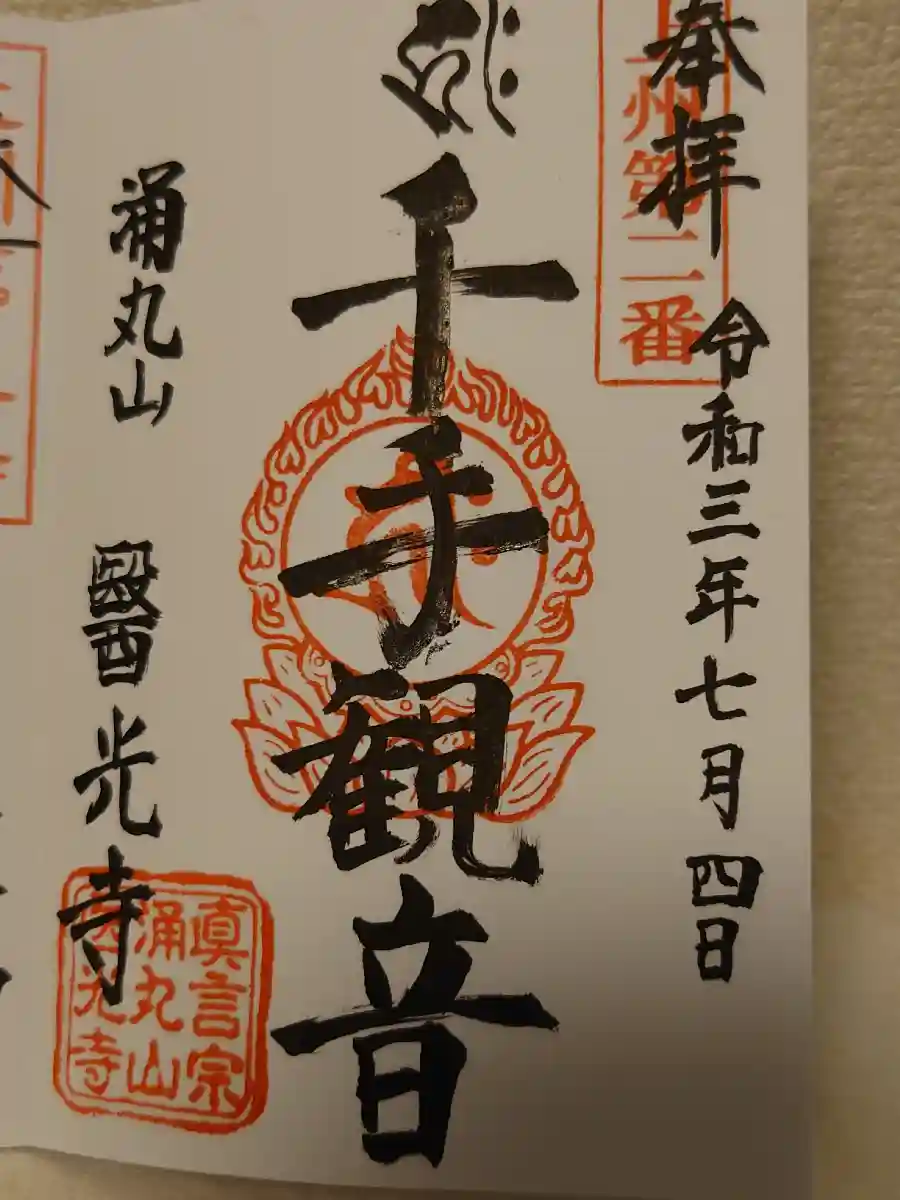 奉拝
州第二番
令和三年七月四日
千手観音
涌丸山
醫光寺
眞言宗
涌丸山
光寺